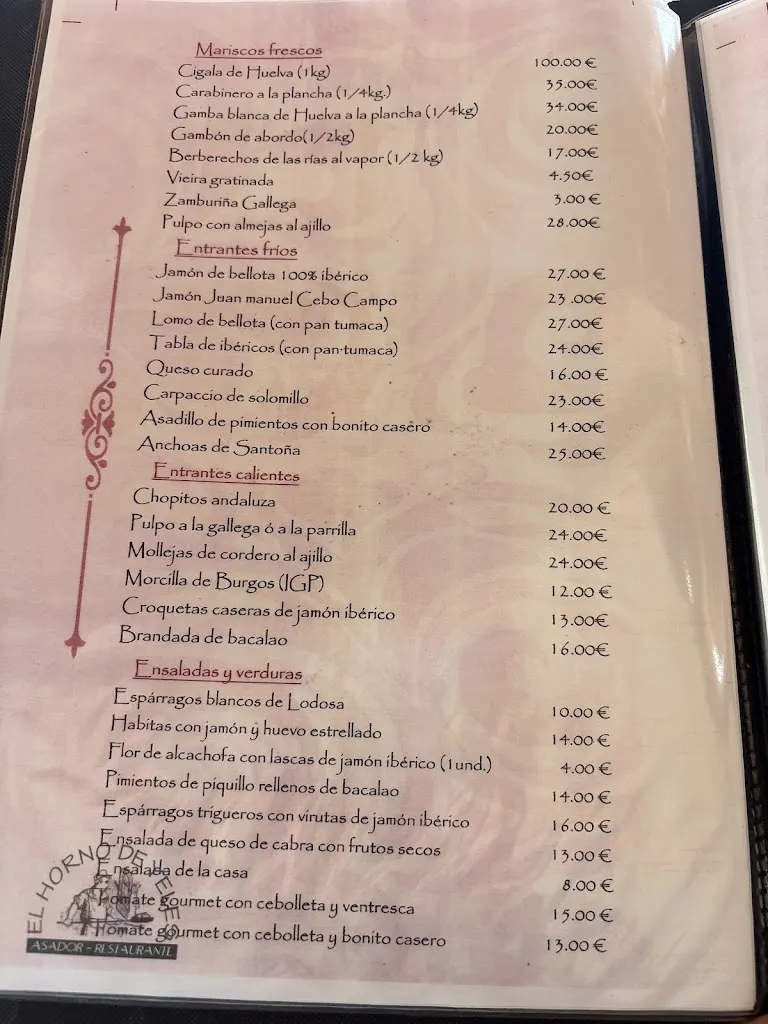 Mariscos frescos
Cigala de Huelva (1kg) 100.00 €
Carabinero a la plancha (1/4kg.) 35.00€
Gamba blanca de Huelva a la plancha (1/4kg) 34.00€
Gambón de abordo(1/2kg) 20.00€
Berberechos de las rías al vapor (1/2 kg) 17.00€
Vieira gratinada 4.50€
Zamburiña Gallega 3.00 €
Pulpo con almejas al ajillo 28.00€
Entrantes frios
Jamón de bellota 100% ibérico 27.00 €
Jamón Juan manuel Cebo Campo 23 .00€
Lomo de bellota (con pan tumaca) 27.00€
Tabla de ibéricos (con pan-tumaca) 24.00€
Queso curado 16.00 €
Carpaccio de solomillo 23.00€
Asadillo de pimientos con bonito casero 14.00€
Anchoas de Santoña 25.00€
Entrantes calientes
Chopitos andaluza 20.00 €
Pulpo a la gallega ó a la parrilla 24.00€
Mollejas de cordero al ajillo 24.00€
Morcilla de Burgos (IGP) 12.00 €
Croquetas caseras de jamón ibérico 13.00€
Brandada de bacalao 16.00€
Ensaladas y verduras
Espárragos blancos de Lodosa 10.00 €
Habitas con jamón y huevo estrellado 14.00 €
Flor de alcachofa con lascas de jamón ibérico (1und.) 4.00 €
Pimientos de piquillo rellenos de bacalao 14.00 €
Espárragos trigueros con virutas de jamón ibérico 16.00 €
Ensalada de queso de cabra con frutos secos 13.00 €
Ensalada de la casa 8.00 €
Tomate gourmet con cebolleta y ventresca 15.00 €
Tomate gourmet con cebolleta y bonito casero 13.00 €
EL HORNO DE
ASADOR - RESTAURANTE